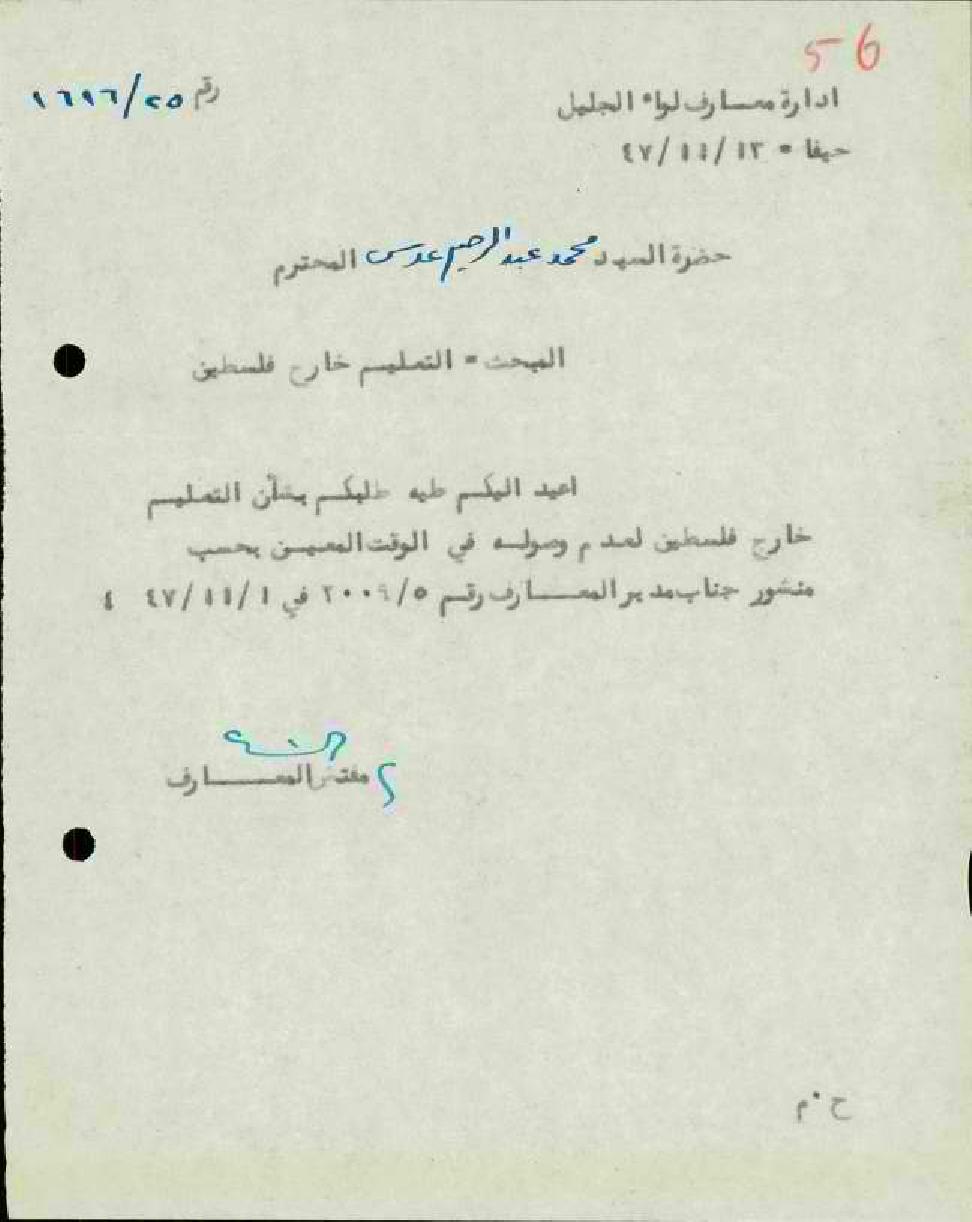 56
ادارة معسارف لواء الجليل
رقم ١٦٩٦/٢٥
حيفا = ٤٧/١١/١٣
حضرة السيد محمد عبد الرحيم عدس المحترم
المبحث = التعليم خارج فلسطين
اعيد اليكم طيه طلبكم بشأن التعليم
خارج فلسطين لعدم وصولـه في الوقت المعيـن بحسب
منشور جناب مدير المعـــارف رقـم ٢٠٠٩/٥ في ٤٧/١١/١
مفتش المعـــارف
ح ٠ م